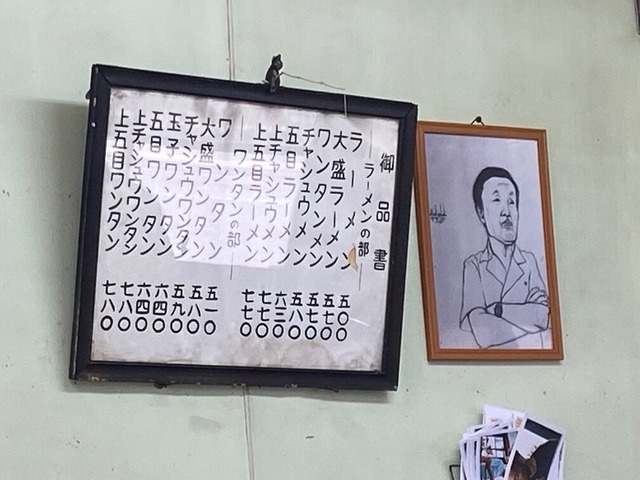 御品書
ラーメンの部
ラーメン 五〇〇
大盛ラーメン 五七〇
ワンタンメン 五七〇
チャシュウメン 五八〇
五目ラーメン 六三〇
上チャシュウメン 七七〇
上五目ラーメン 七七〇
ワンタンの部
ワンタン 五一〇
大盛ワンタン 五八〇
チャシュウワンタン 五九〇
玉子ワンタン 六四〇
五目ワンタン 六四〇
上チャシュウワンタン 七八〇
上五目ワンタン 七八〇